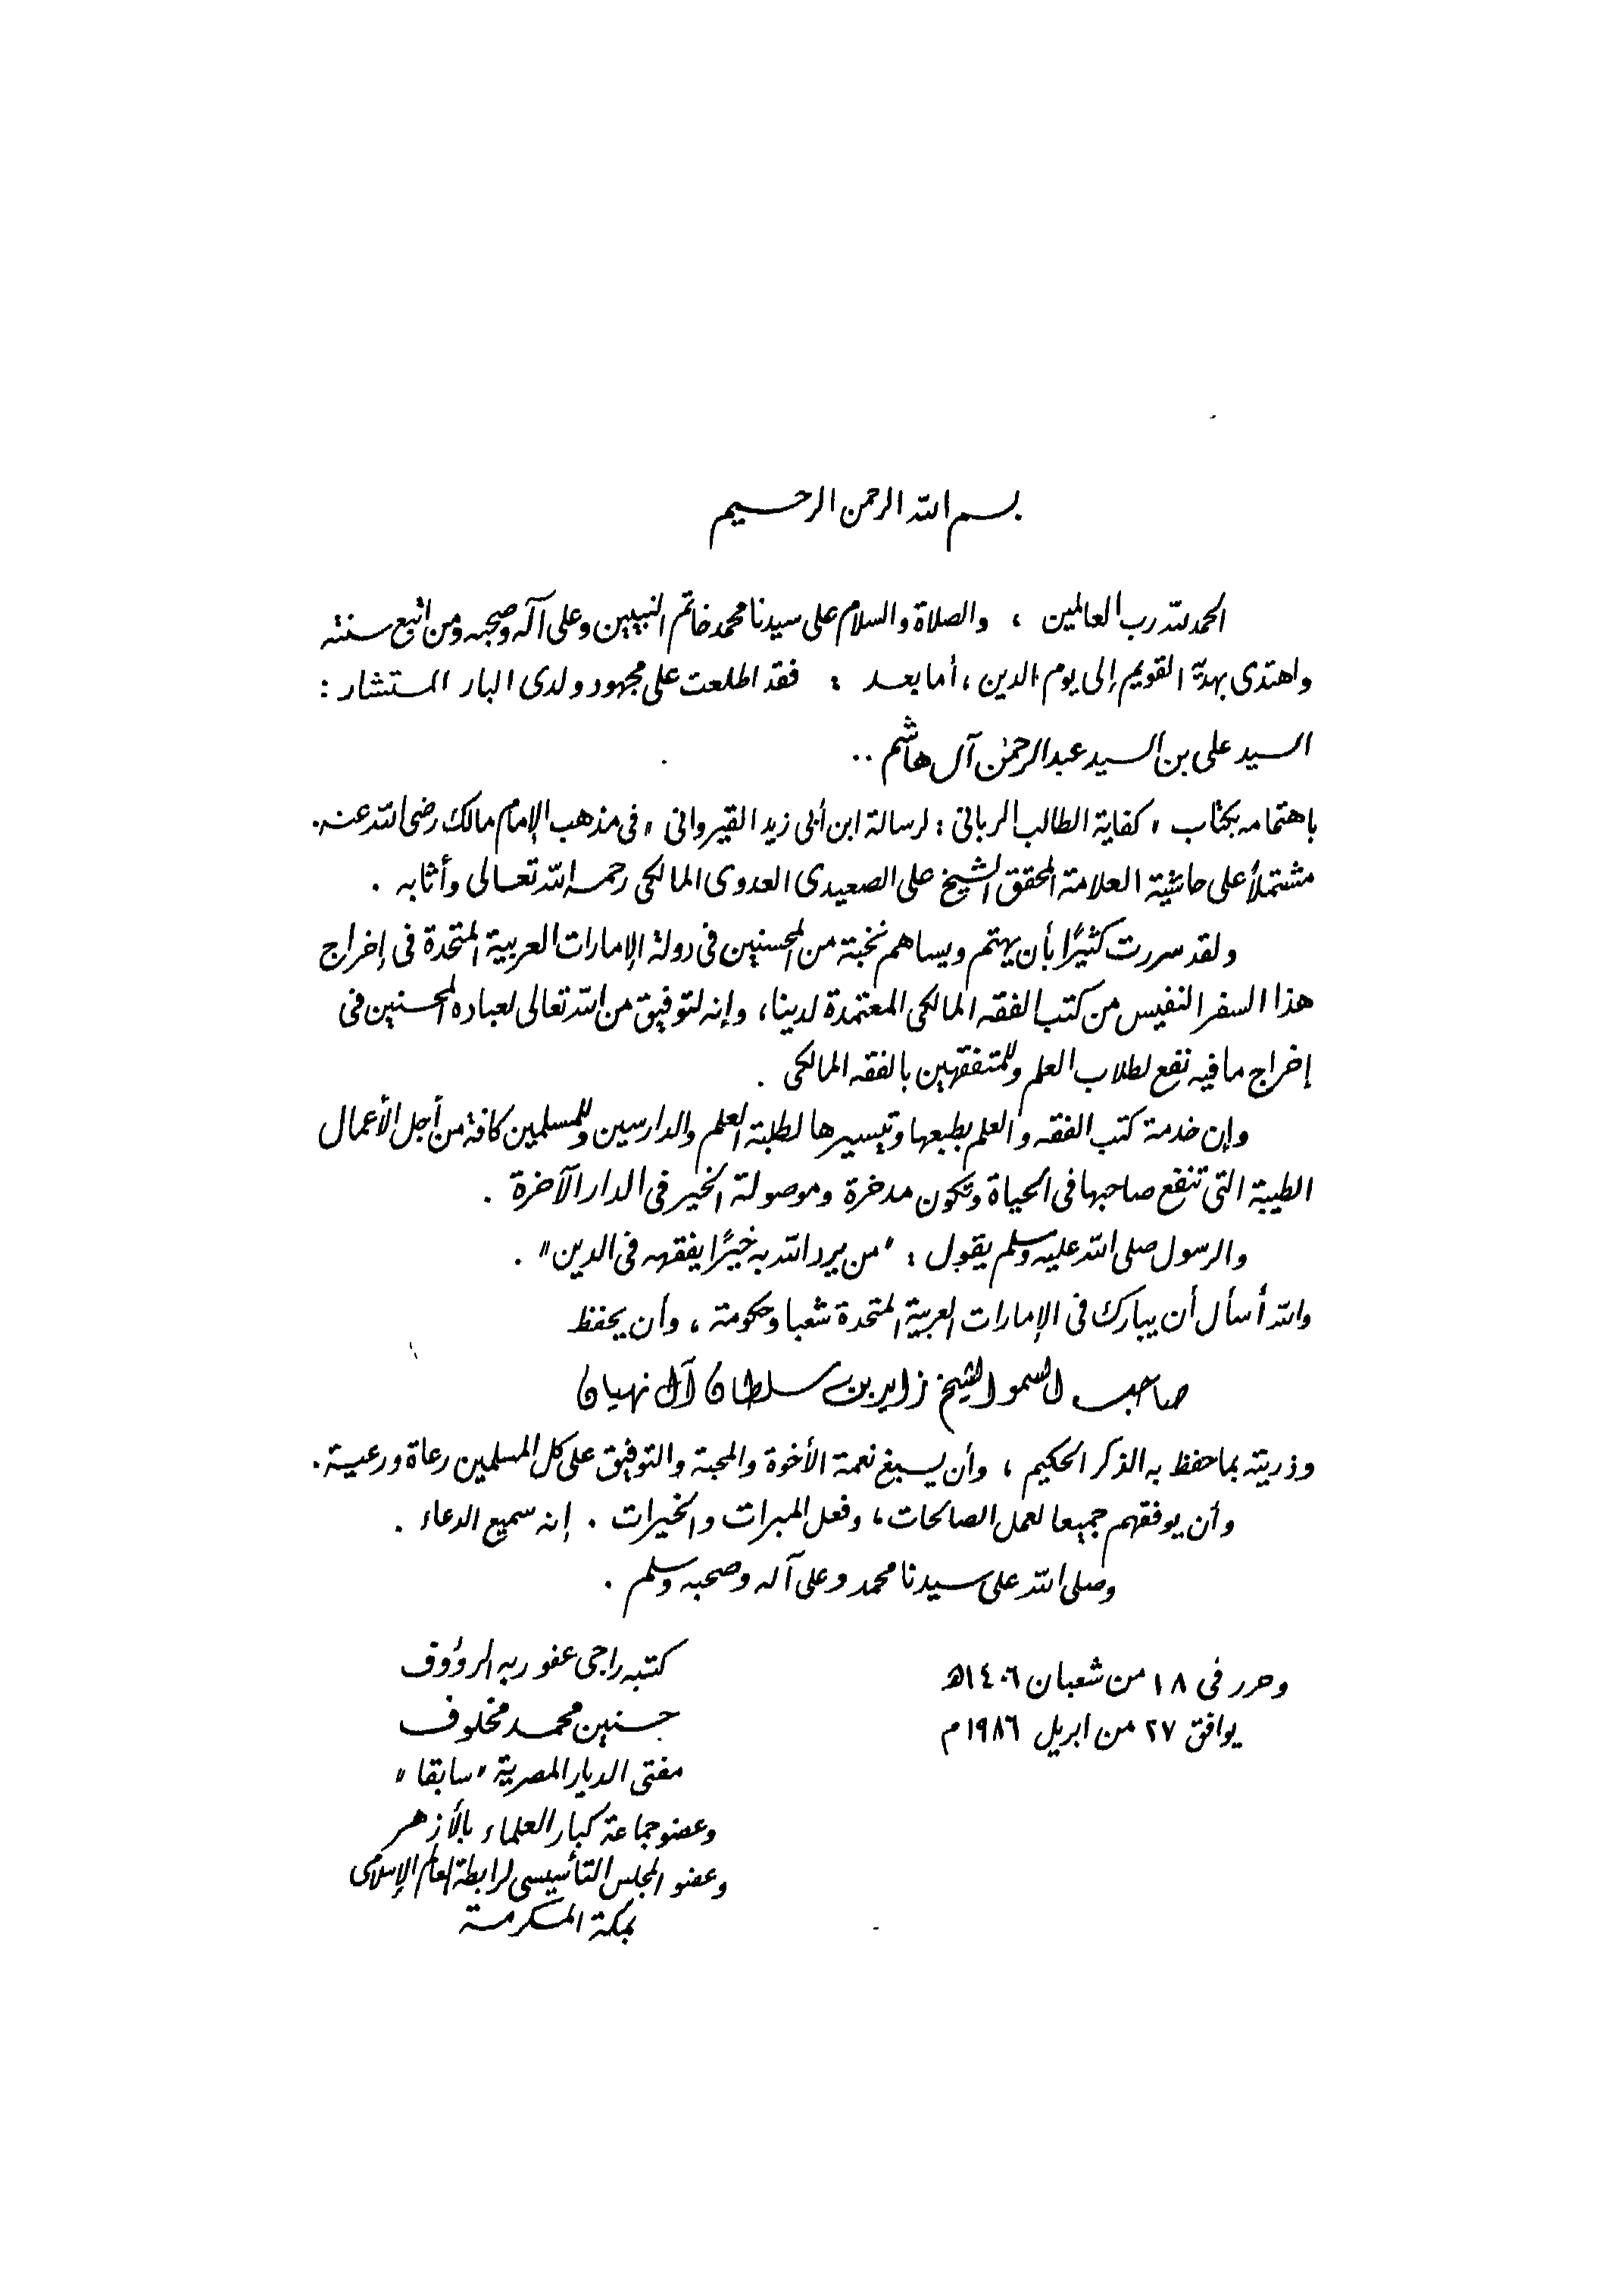 بسم الله الرحمن الرحيم
الحمد لله رب العالمين ، والصلاة والسلام على سيدنا محمد خاتم النبيين وعلى آله وصحبه ومن اتبع سنته
واهتدى بهديه القويم إلى يوم الدين ، أما بعد : فقد اطلعت على مجهود ولدى البار المستشار :
السيد على بن السيد عبدالرحمن آل هاشم ..
باهتمامه بكتاب " كفاية الطالب الربانى : لرسالة ابن أبى زيد القيروانى " فى مذهب الإمام مالك رضى الله عنه .
مشتملاً على حاشية العلامة المحقق الشيخ على الصعيدى العدوى المالكى رحمه الله تعالى وأثابه .
ولقد سررت كثيرًا بأن يهتم ويساهم نخبة من المحسنين فى دولة الإمارات العربية المتحدة فى إخراج
هذا السفر النفيس من كتب الفقه المالكى المعتمدة لدينا ، وإنه لتوفيق من الله تعالى لعباده المحسنين فى
إخراج ما فيه نفع لطلاب العلم وللمتفقهين بالفقه المالكى .
وإن خدمة كتب الفقه والعلم بطبعها وتيسيرها لطلبة العلم والدارسين وللمسلمين كافة من أجل الأعمال
الطيبة التى تنفع صاحبها فى الحياة وتكون مدخرة وموصولة الخير فى الدار الآخرة .
والرسول صلى الله عليه وسلم يقول : " من يرد الله به خيرًا يفقهه فى الدين " .
والله أسأل أن يبارك فى الإمارات العربية المتحدة شعبا وحكومة ، وأن يحفظ
صاحب السمو الشيخ زايد بن سلطان آل نهيان
وذريته بما حفظ به الذكر الحكيم ، وأن يسبغ نعمة الأخوة والمحبة والتوفيق على كل المسلمين رعاة ورعية .
وأن يوفقهم جميعا لعمل الصالحات ، وفعل المبرات والخيرات . إنه سميع الدعاء .
وصلى الله على سيدنا محمد وعلى آله وصحبه وسلم .
وحرر فى ١٨ من شعبان ١٤٠٦هـ
يوافق ٢٧ من ابريل ١٩٨٦م
كتبه راجى عفو ربه الرؤوف
حسنين محمد مخلوف
مفتى الديار المصرية " سابقا "
وعضو جماعة كبار العلماء بالأزهر
وعضو المجلس التأسيسى لرابطة العالم الإسلامى
بمكة المكرمة